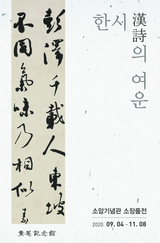 한시 漢詩의 여운
彭澤千載人東坡
不同氣味乃相似
素菴記念館
소암기념관 소장품전
2020. 09. 04 - 11. 08